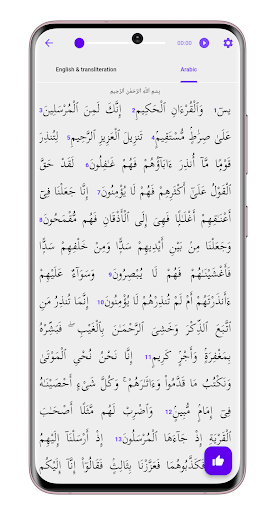 00:00
English & transliteration
Arabic
بِسْمِ ٱللَّهِ ٱلرَّحْمَٰنِ ٱلرَّحِيمِ
يسٓ1 وَٱلْقُرْءَانِ ٱلْحَكِيمِ2 إِنَّكَ لَمِنَ ٱلْمُرْسَلِينَ3
عَلَىٰ صِرَٰطٍ مُّسْتَقِيمٍ4 تَنزِيلَ ٱلْعَزِيزِ ٱلرَّحِيمِ5 لِتُنذِرَ
قَوْمًا مَّآ أُنذِرَ ءَابَآؤُهُمْ فَهُمْ غَٰفِلُونَ6 لَقَدْ حَقَّ
ٱلْقَوْلُ عَلَىٰٓ أَكْثَرِهِمْ فَهُمْ لَا يُؤْمِنُونَ7 إِنَّا جَعَلْنَا فِىٓ
أَعْنَٰقِهِمْ أَغْلَٰلًا فَهِىَ إِلَى ٱلْأَذْقَانِ فَهُم مُّقْمَحُونَ8
وَجَعَلْنَا مِنۢ بَيْنِ أَيْدِيهِمْ سَدًّا وَمِنْ خَلْفِهِمْ سَدًّا
فَأَغْشَيْنَٰهُمْ فَهُمْ لَا يُبْصِرُونَ9 وَسَوَآءٌ عَلَيْهِمْ
ءَأَنذَرْتَهُمْ أَمْ لَمْ تُنذِرْهُمْ لَا يُؤْمِنُونَ10 إِنَّمَا تُنذِرُ مَنِ
ٱتَّبَعَ ٱلذِّكْرَ وَخَشِىَ ٱلرَّحْمَٰنَ بِٱلْغَيْبِ ۖ فَبَشِّرْهُ
بِمَغْفِرَةٍ وَأَجْرٍ كَرِيمٍ11 إِنَّا نَحْنُ نُحْىِ ٱلْمَوْتَىٰ
وَنَكْتُبُ مَا قَدَّمُوا۟ وَءَاثَٰرَهُمْ ۚ وَكُلَّ شَىْءٍ أَحْصَيْنَٰهُ
فِىٓ إِمَامٍ مُّبِينٍ12 وَٱضْرِبْ لَهُم مَّثَلًا أَصْحَٰبَ
ٱلْقَرْيَةِ إِذْ جَآءَهَا ٱلْمُرْسَلُونَ13 إِذْ أَرْسَلْنَآ إِلَيْهِمُ
فَكَذَّبُوهُمَا فَعَزَّزْنَا بِثَالِثٍ فَقَالُوٓا۟ إِنَّآ إِلَيْكُم